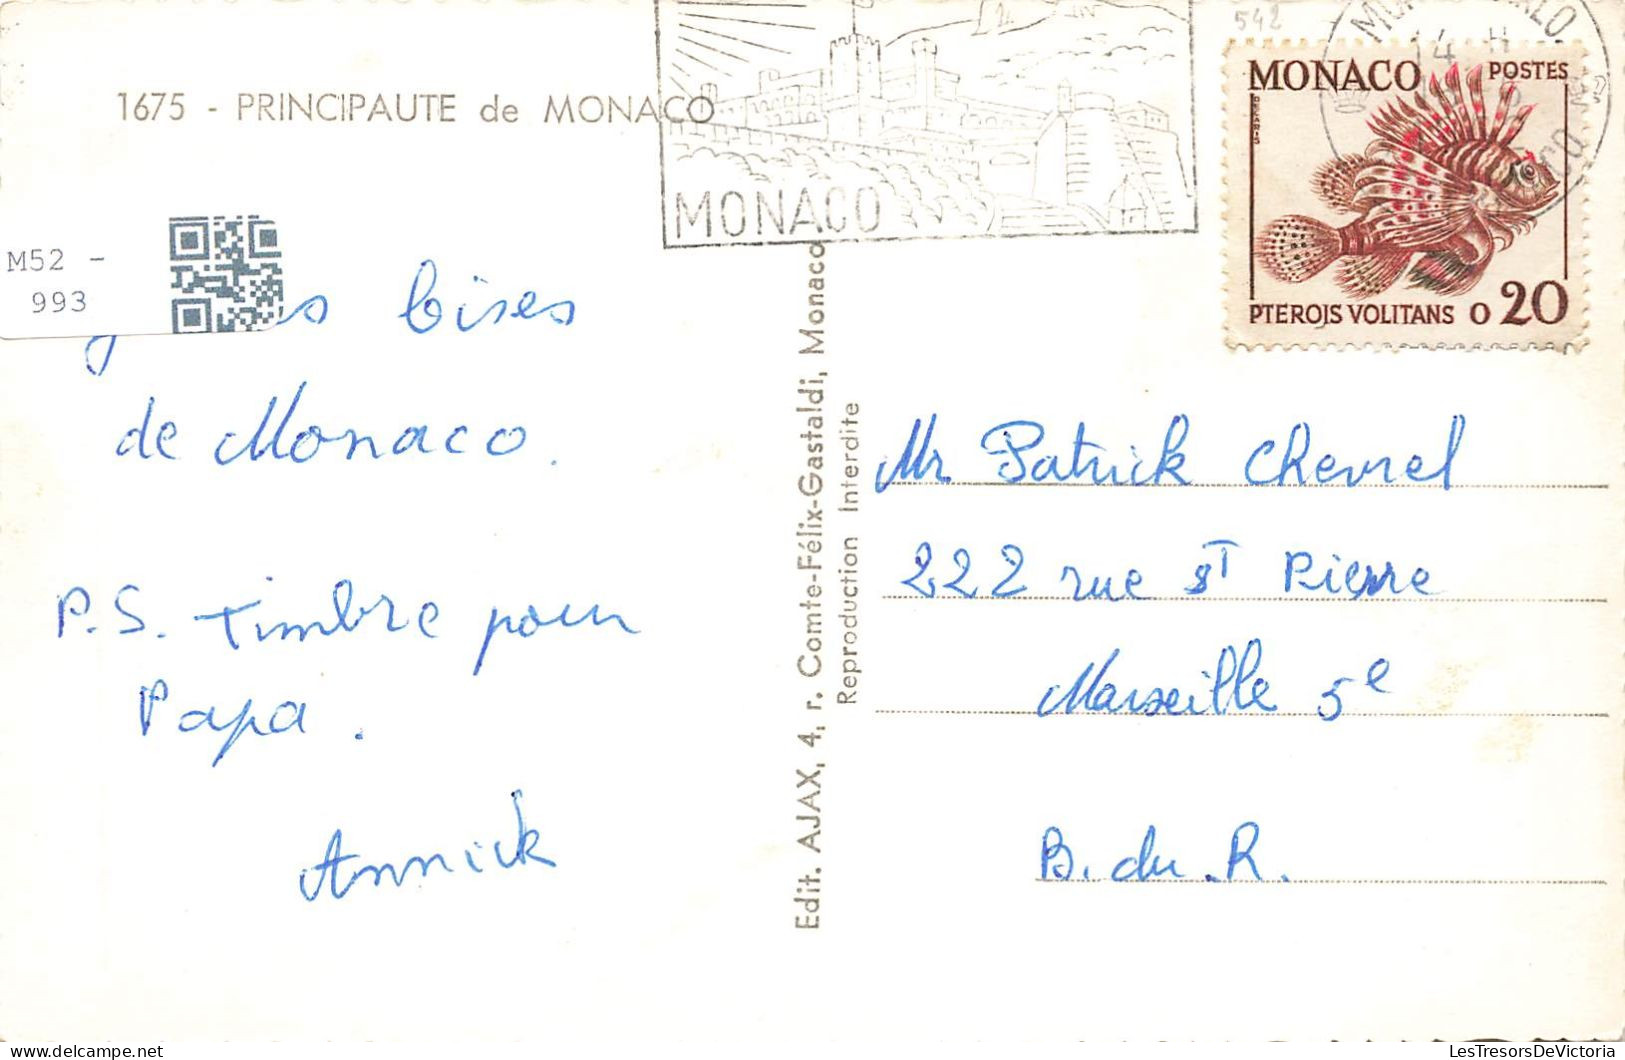 1675 - PRINCIPAUTE de MONACO
M52 -
993
bises
de Monaco.
P.S. Timbre pour
Papa.
Annick
Edit. AJAX, 4, r. Comte-Félix-Gastaldi, Monaco
Reproduction Interdite
MONACO
542
14 H
MONACO POSTES
PTEROIS VOLITANS 0 20
Mr Patrick Chevrel
222 rue St Pierre
Marseille 5e
B. du .R.
LesTresorsDeVictoria